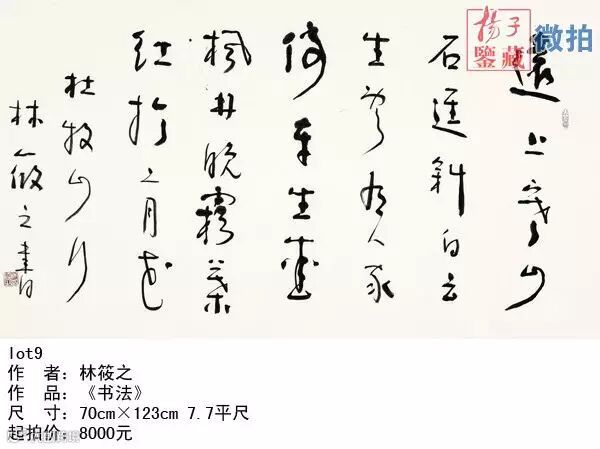 遠上寒山
石徑斜白云
生處有人家
停车坐愛
楓林晚霜葉
紅於二月花
杜牧山行
林筱之書
揚子
鑒藏
微拍
lot9
作 者: 林筱之
作 品: 《书法》
尺 寸: 70cm×123cm 7.7平尺
起拍价: 8000元